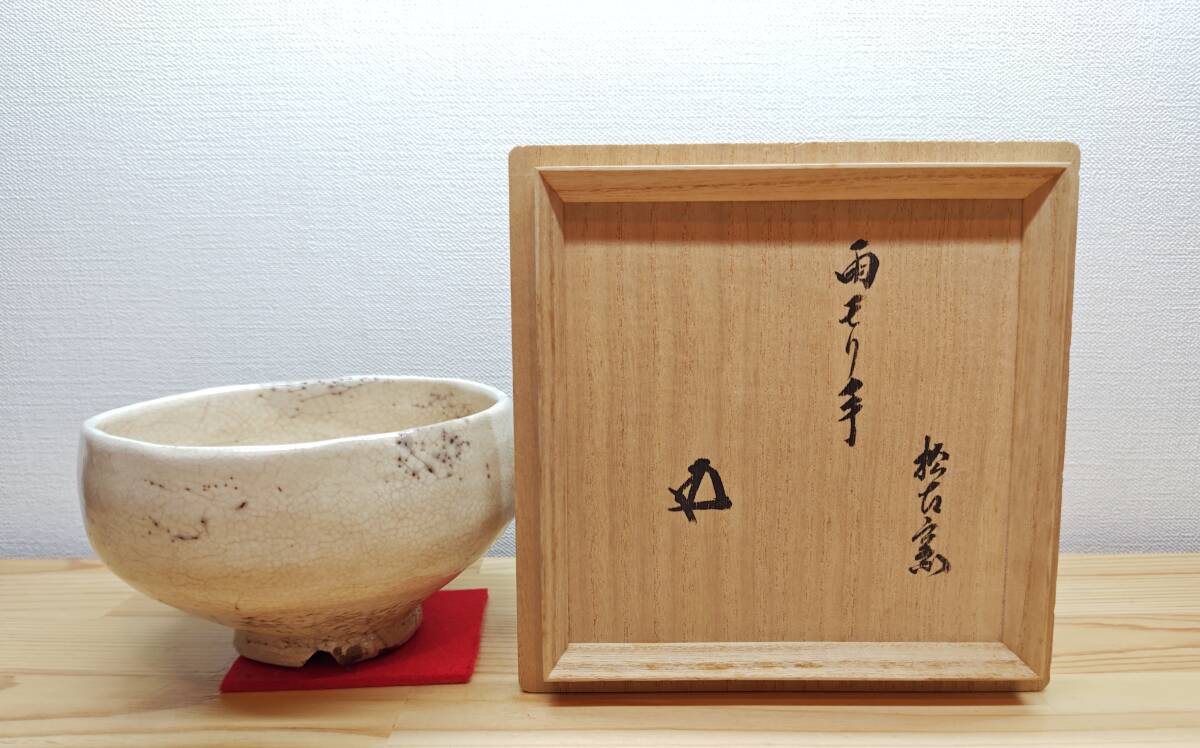 松古窯
雨もり手